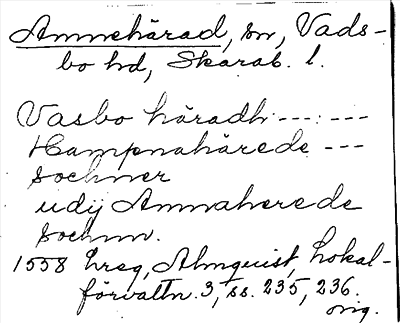 Amnehärad, sn, Vads-
bo hd, Skarab. l.
Vasbo häradh --- : ---
Hampnahärede ---
sochner
udij Amnaherede
sochnn.
1558 Lreg, Almquist, Lokal-
förvaltn. 3, ss. 235, 236.
orig.